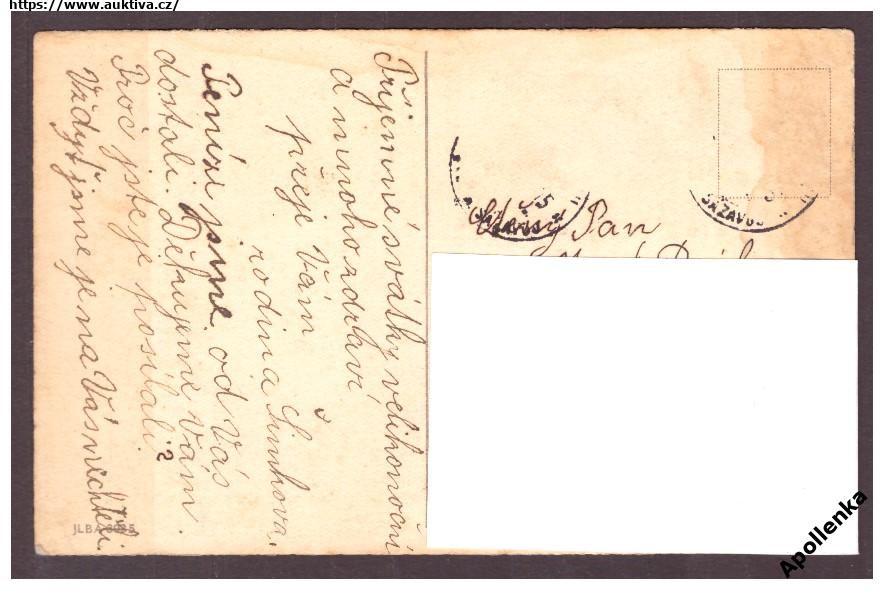 https://www.auktiva.cz/
Příjemné svátky velikonoční
a mnoho zdraví
přeje Vám
rodina Šimkova.
Peníze jsme od Vás
dostali. Děkujeme Vám.
Proč jste je posílali?
Vždyť jsme je na Vás nechtěli.
JLBA
Pan
SÁZAVOU
Apollenka